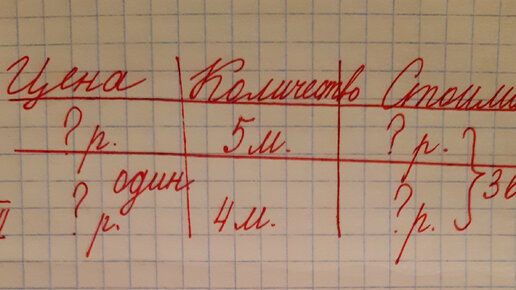 Цена Количество Стоимо
? р. 5 м. ? р.
один
II ? р. 4 м. ? р. } 36